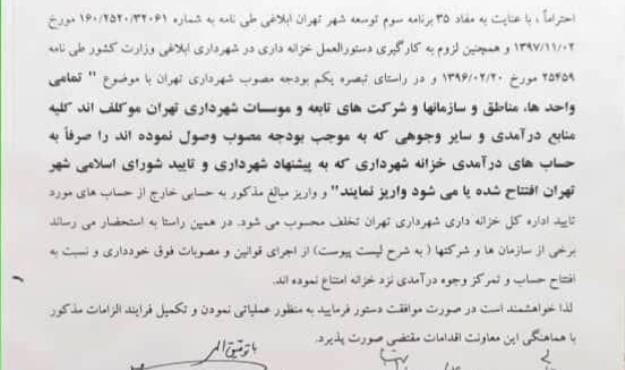 احتراماً ، با عنایت به مفاد ۳۵ برنامه سوم توسعه شهر تهران ابلاغی طی نامه به شماره ۱۶۰/۲۵۲۰/۳۲۰۶۱ مورخ
۱۳۹۷/۱۱/۰۲ و همچنین لزوم به کارگیری دستورالعمل خزانه داری در شهرداری ابلاغی وزارت کشور طی نامه
۲۵۴۵۹ مورخ ۱۳۹۶/۰۲/۲۰ و در راستای تبصره یکم بودجه مصوب شهرداری تهران با موضوع " تمامی
واحد ها، مناطق و سازمانها و شرکت های تابعه و موسسات شهرداری تهران موکلف اند کلیه
منابع درآمدی و سایر وجوهی که به موجب بودجه مصوب وصول نموده اند را صرفاً به
حساب های درآمدی خزانه شهرداری که به پیشنهاد شهرداری و تایید شورای اسلامی شهر
تهران افتتاح شده یا می شود واریز نمایند" و واریز مبالغ مذکور به حسابی خارج از حساب های مورد
تایید اداره کل خزانه داری شهرداری تهران تخلف محسوب می شود. در همین راستا به استحضار می رساند
برخی از سازمان ها و شرکتها ( به شرح لیست پیوست) از اجرای قوانین و مصوبات فوق خودداری و نسبت به
افتتاح حساب و تمرکز وجوه درآمدی نزد خزانه امتناع نموده اند.
لذا خواهشمند است در صورت موافقت دستور فرمایید به منظور عملیاتی نمودن و تکمیل فرایند الزامات مذکور
با هماهنگی این معاونت اقدامات مقتضی صورت پذیرد.
با توفیق الهی